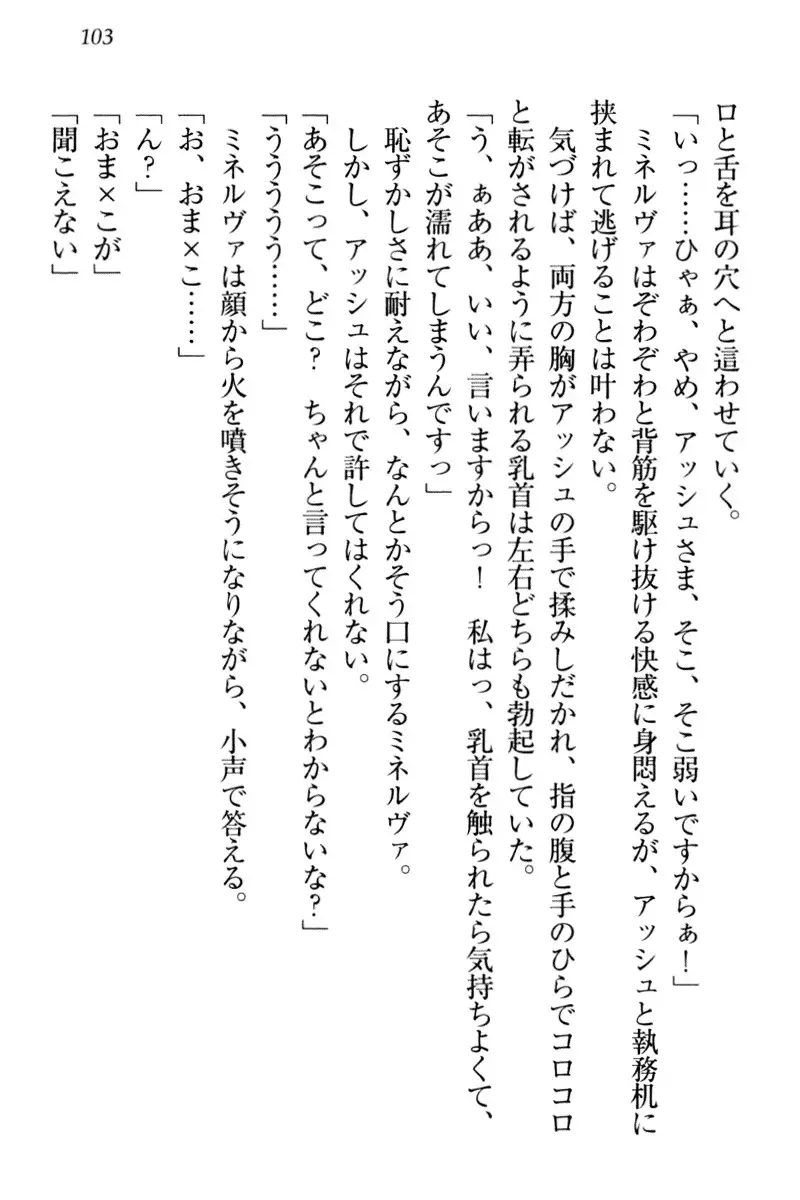 103
ロと舌を耳の穴へと這わせていく。
「いっ……ひゃぁ、やめ、アッシュさま、そこ、そこ弱いですからぁ！」
ミネルヴァはぞわぞわと背筋を駆け抜ける快感に身悶えるが、アッシュと執務机に
挟まれて逃げることは叶わない。
気づけば、両方の胸がアッシュの手で揉みしだかれ、指の腹と手のひらでコロコロ
と転がされるように弄られる乳首は左右どちらも勃起していた。
「う、ぁああ、いい、言いますからっ！　私はっ、乳首を触られたら気持ちよくて、
あそこが濡れてしまうんですっ」
恥ずかしさに耐えながら、なんとかそう口にするミネルヴァ。
しかし、アッシュはそれで許してはくれない。
「あそこって、どこ？　ちゃんと言ってくれないとわからないな？」
「ううううう……」
ミネルヴァは顔から火を噴きそうになりながら、小声で答える。
「お、おま×こ……」
「ん？」
「おま×こが」
「聞こえない」